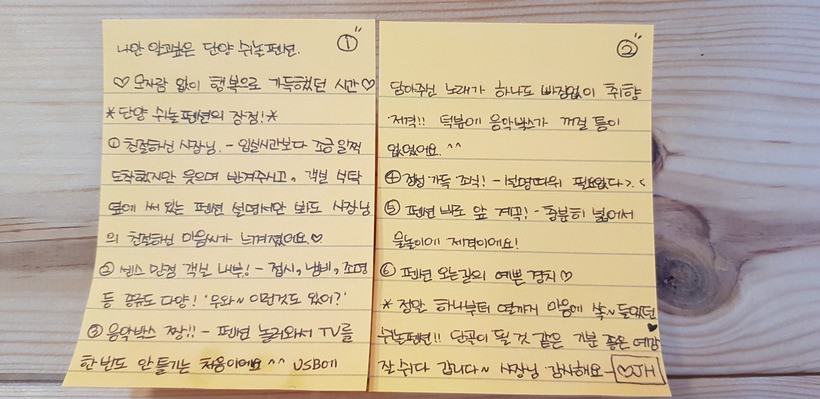 ①
나만 알고싶은 단양 쉬놀펜션.
♡ 모자람 없이 행복으로 가득했던 시간♡
*단양 쉬놀펜션의 장점!*
① 친절하신 사장님. - 입실시간보다 조금 일찍
도착했지만 웃으며 반겨주시고, 객실 식탁
옆에 써 있는 펜션 설명서만 봐도 사장님
의 친절하신 마음씨가 느껴졌어요♡
② 센스 만점 객실 내부! - 접시, 냄비, 조명
등 종류도 다양! '우와~ 이런것도 있어?'
③ 음악박스 짱!! - 펜션 놀러와서 TV를
한번도 안 틀기는 처음이에요^^ USB에
②
담아주신 노래가 하나도 빠짐없이 취향
저격!! 덕분에 음악박스가 꺼질 틈이
없었어요. ^^
④ 정성 가득 조식! - 설명따위 필요없다>.<
⑤ 펜션 바로 앞 계곡! - 충분히 넓어서
물놀이에 제격이에요!
⑥ 펜션 오는길의 예쁜 경치♡
* 정말 하나부터 열까지 마음에 쏙~ 들었던
쉬놀펜션!! 단골이 될 것 같은 기분 좋은 예감♥
잘 쉬다 갑니다~ 사장님 감사해요-♡JH